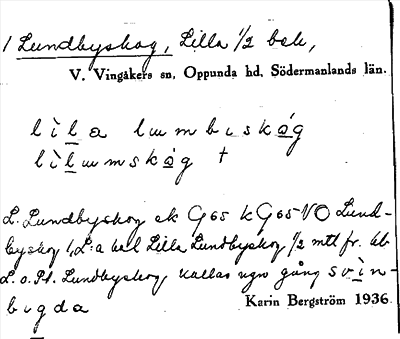 1 Lundbyskog, Lilla 1/2 bok,
V. Vingåkers sn, Oppunda hd, Södermanlands län.
lìla lummbıskóg
lìlummskóg †
L. Lundbyskog ek G65 k G65 VO Lund-
byskog 1, L:a bel Lilla Lundbyskog 1/2 mtl fr.
L. o. St. Lundbyskog, kallas ngn gång svìn-
bıgda
Karin Bergström 1936.